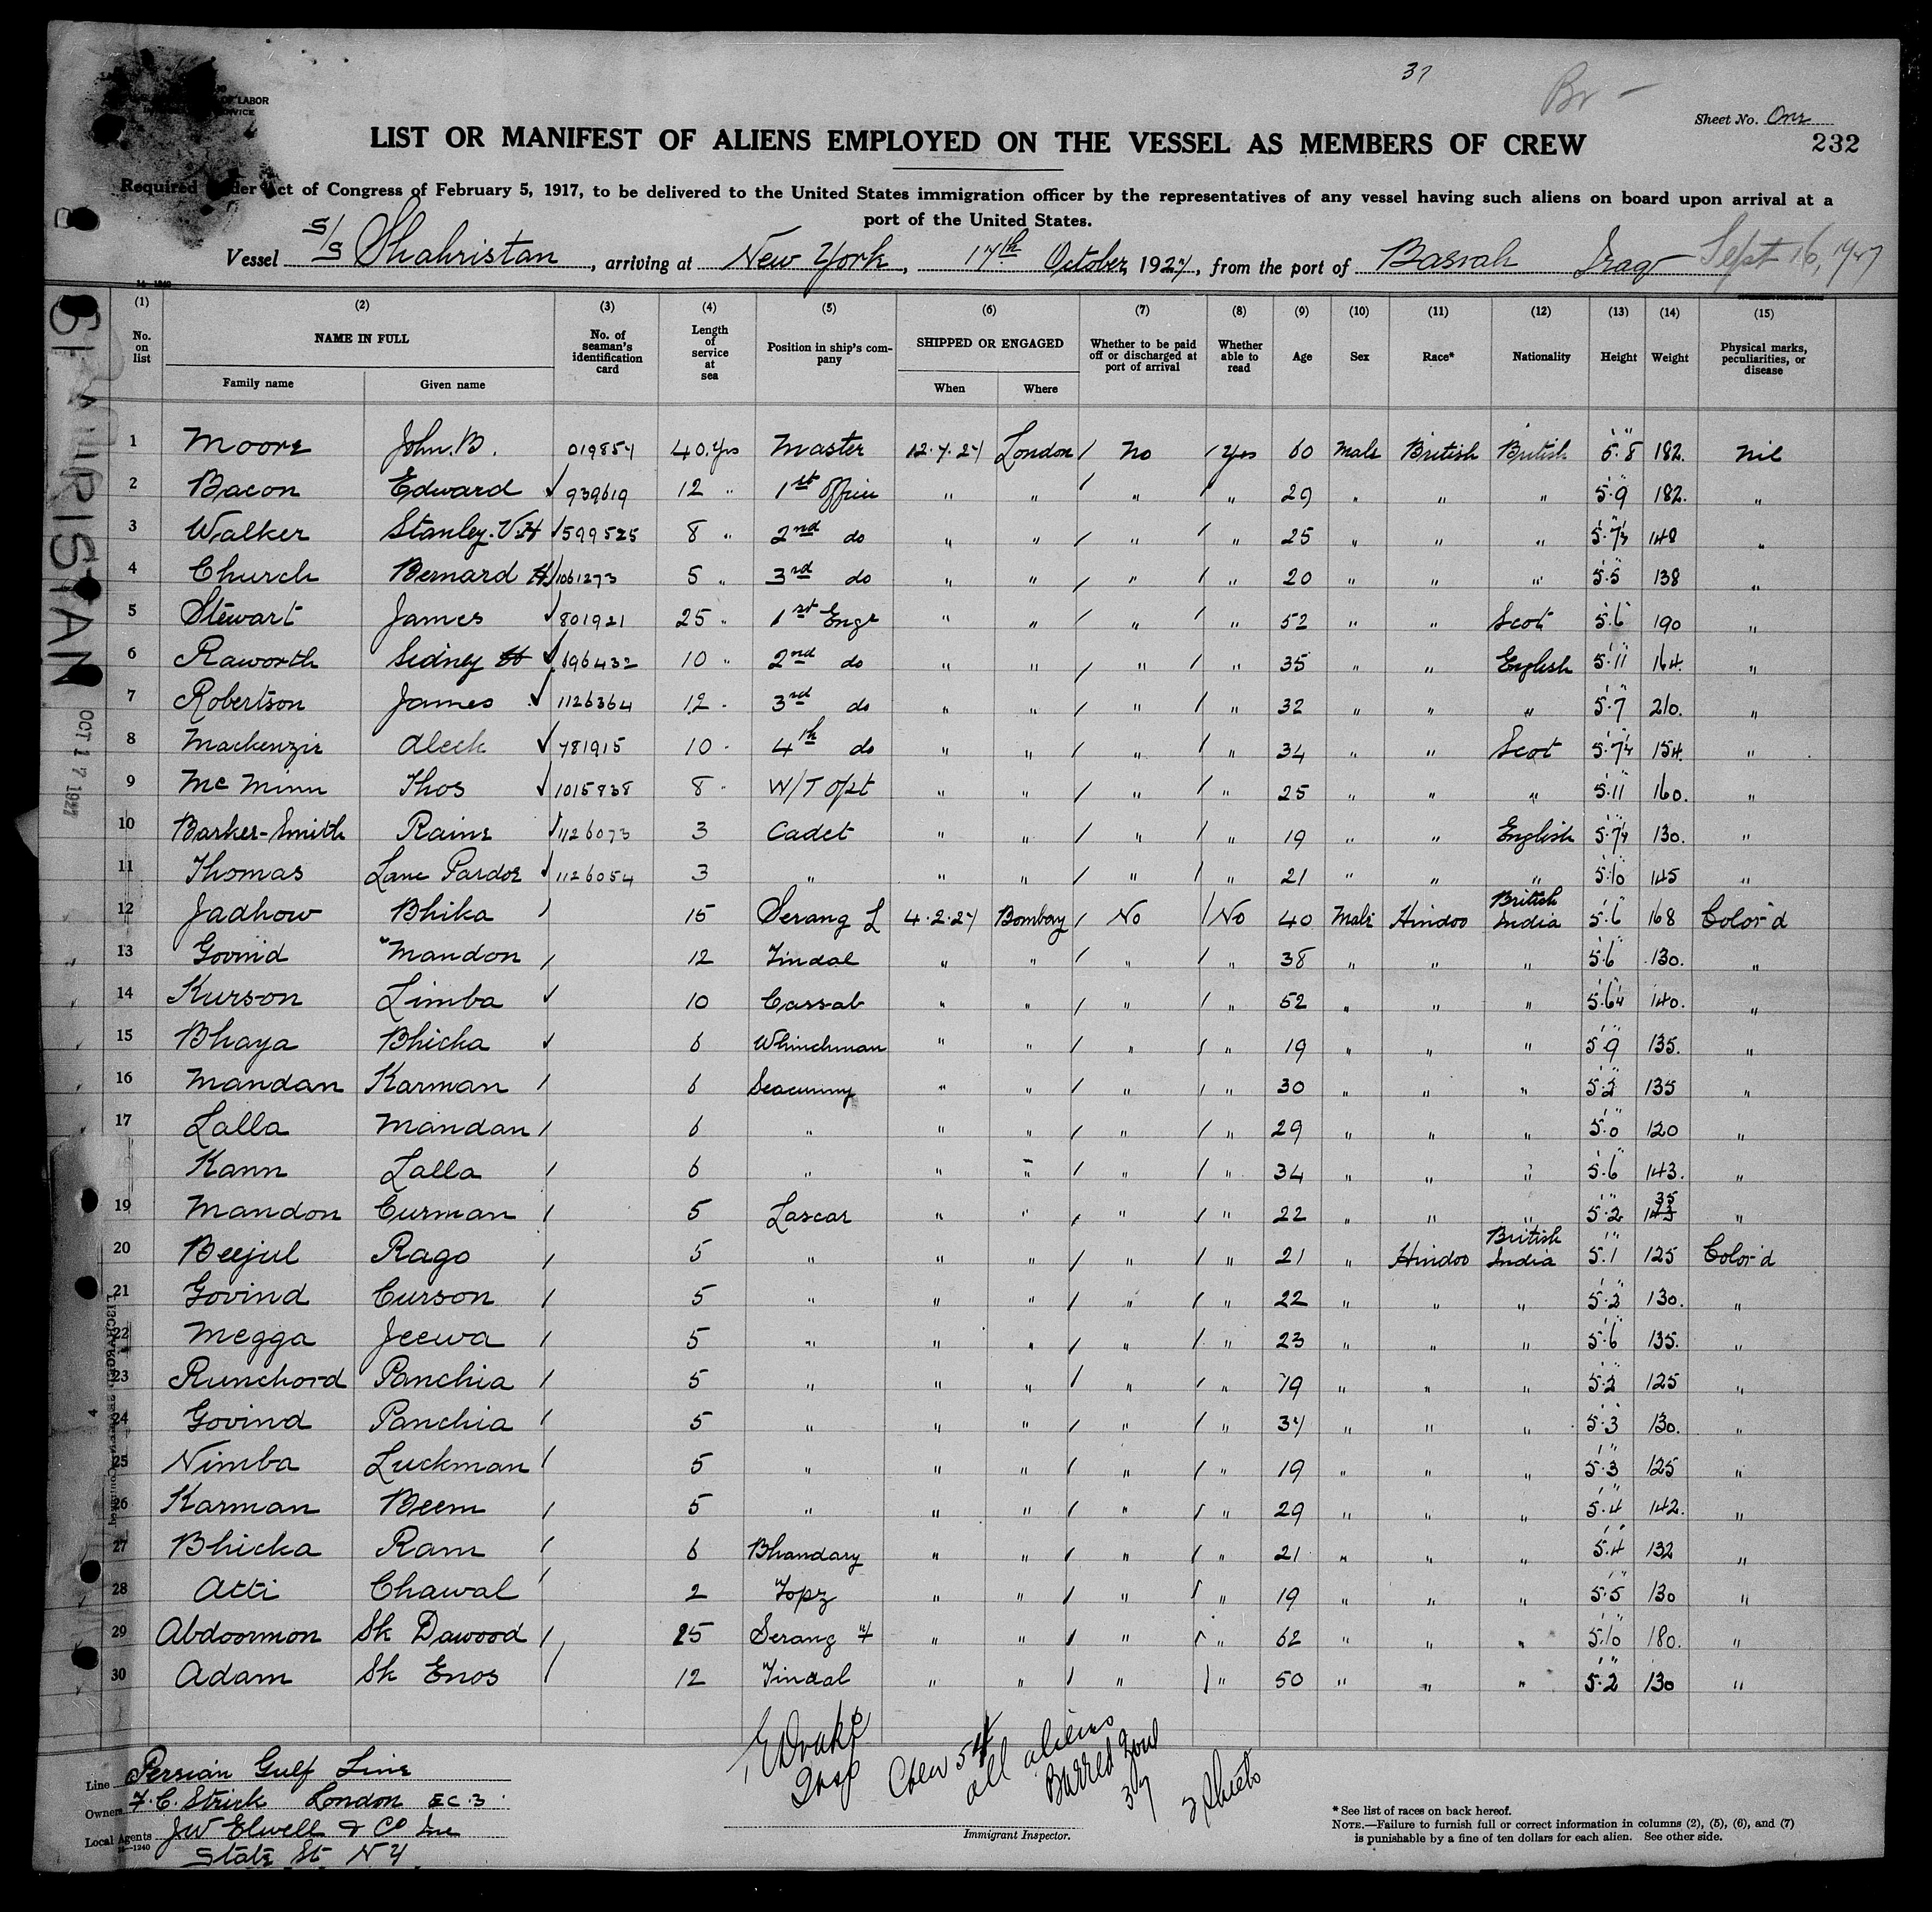 37
Br -
OF LABOR
Sheet No. One
LIST OR MANIFEST OF ALIENS EMPLOYED ON THE VESSEL AS MEMBERS OF CREW
232
Required under Act of Congress of February 5, 1917, to be delivered to the United States immigration officer by the representatives of any vessel having such aliens on board upon arrival at a
port of the United States.
Vessel S/S Shahristan, arriving at New York, 17th October, 1927, from the port of Basrah Iraq Sept 16, 1927
(1) (2) (3) (4) (5) (6) (7) (8) (9) (10) (11) (12) (13) (14) (15)
No. on list NAME IN FULL Family name Given name No. of seaman's identification card Length of service at sea Position in ship's company SHIPPED OR ENGAGED When Where Whether to be paid off or discharged at port of arrival Whether able to read Age Sex Race* Nationality Height Weight Physical marks, peculiarities, or disease
1 Moore John. B. 019857 40. Yrs Master 12.7.27 London No Yes 60 Male British British 5.8 182. nil
2 Bacon Edward 939619 12 " 1st Officer " " " " 29 " " " 5.9 182. "
3 Walker Stanley. V.H 599525 8 " 2nd do " " " " 25 " " " 5.7½ 148 "
4 Church Bernard H 1061273 5 " 3rd do " " " " 20 " " " 5.5 138 "
5 Stewart James 801921 25 " 1st Engr " " " " 52 " " Scot 5.6 190 "
6 Raworth Sidney 696432 10 " 2nd do " " " " 35 " " English 5.11 164. "
7 Robertson James 1126364 12 " 3rd do " " " " 32 " " " 5.7 210. "
8 Mackenzie Aleck 781915 10 " 4th do " " " " 34 " " Scot 5.7½ 154. "
9 McMinn Thos 1015838 8 " W/T Opt " " " " 25 " " " 5.11 160. "
10 Barker-Smith Raine 1126073 3 Cadet " " " " 19 " " English 5.7½ 130. "
11 Thomas Lane Pardoe 1126054 3 " " " " " 21 " " " 5.10 145 "
12 Jadhow Bhika 15 Serang L 4.2.27 Bombay No No 40 Male Hindoo British India 5.6 168 Color'd
13 Govind Mandon 12 Tindal " " " " 38 " " " 5.6 130. "
14 Kurson Limba 10 Cassab " " " " 52 " " " 5.6½ 140. "
15 Bhaya Bhicka 6 Whinchman " " " " 19 " " " 5.9 135. "
16 Mandan Karman 6 Seacunny " " " " 30 " " " 5.2 135 "
17 Lalla Mandan 6 " " " " " 29 " " " 5.0 120 "
Kann Lalla 6 " " " " " 34 " " " 5.6 143. "
19 Mandon Curman 5 Lascar " " " " 22 " " " 5.2 135 "
20 Beejul Rago 5 " " " " " 21 " Hindoo British India 5.1 125 Color'd
21 Govind Curson 5 " " " " " 22 " " " 5.2 130. "
22 Megga Jeewa 5 " " " " " 23 " " " 5.6 135. "
23 Runchord Panchia 5 " " " " " 19 " " " 5.2 125 "
24 Govind Panchia 5 " " " " " 37 " " " 5.3 130. "
25 Nimba Luckman 5 " " " " " 19 " " " 5.3 125 "
26 Karman Beem 5 " " " " " 29 " " " 5.4 142. "
27 Bhicka Ram 6 Bhandary " " " " 21 " " " 5.4 132 "
28 Atti Chawal 2 Topz " " " " 19 " " " 5.5 130 "
29 Abdoormon Sk Dawood 25 Serang " " " " 62 " " " 5.10 180. "
30 Adam Sk Enos 12 Tindal " " " " 50 " " " 5.2 130 "
SHAHRISTAN OCT 17 1927
Line Persian Gulf Line
Owners F. C. Strick London E.C.3.
Local Agents JW Elwell & Co Inc
State St N Y
EDrake
Insp
Crew 54
all aliens
Barred Zone
37
2 Sheets
Immigrant Inspector.
* See list of races on back hereof.
NOTE.—Failure to furnish full or correct information in columns (2), (5), (6), and (7)
is punishable by a fine of ten dollars for each alien. See other side.